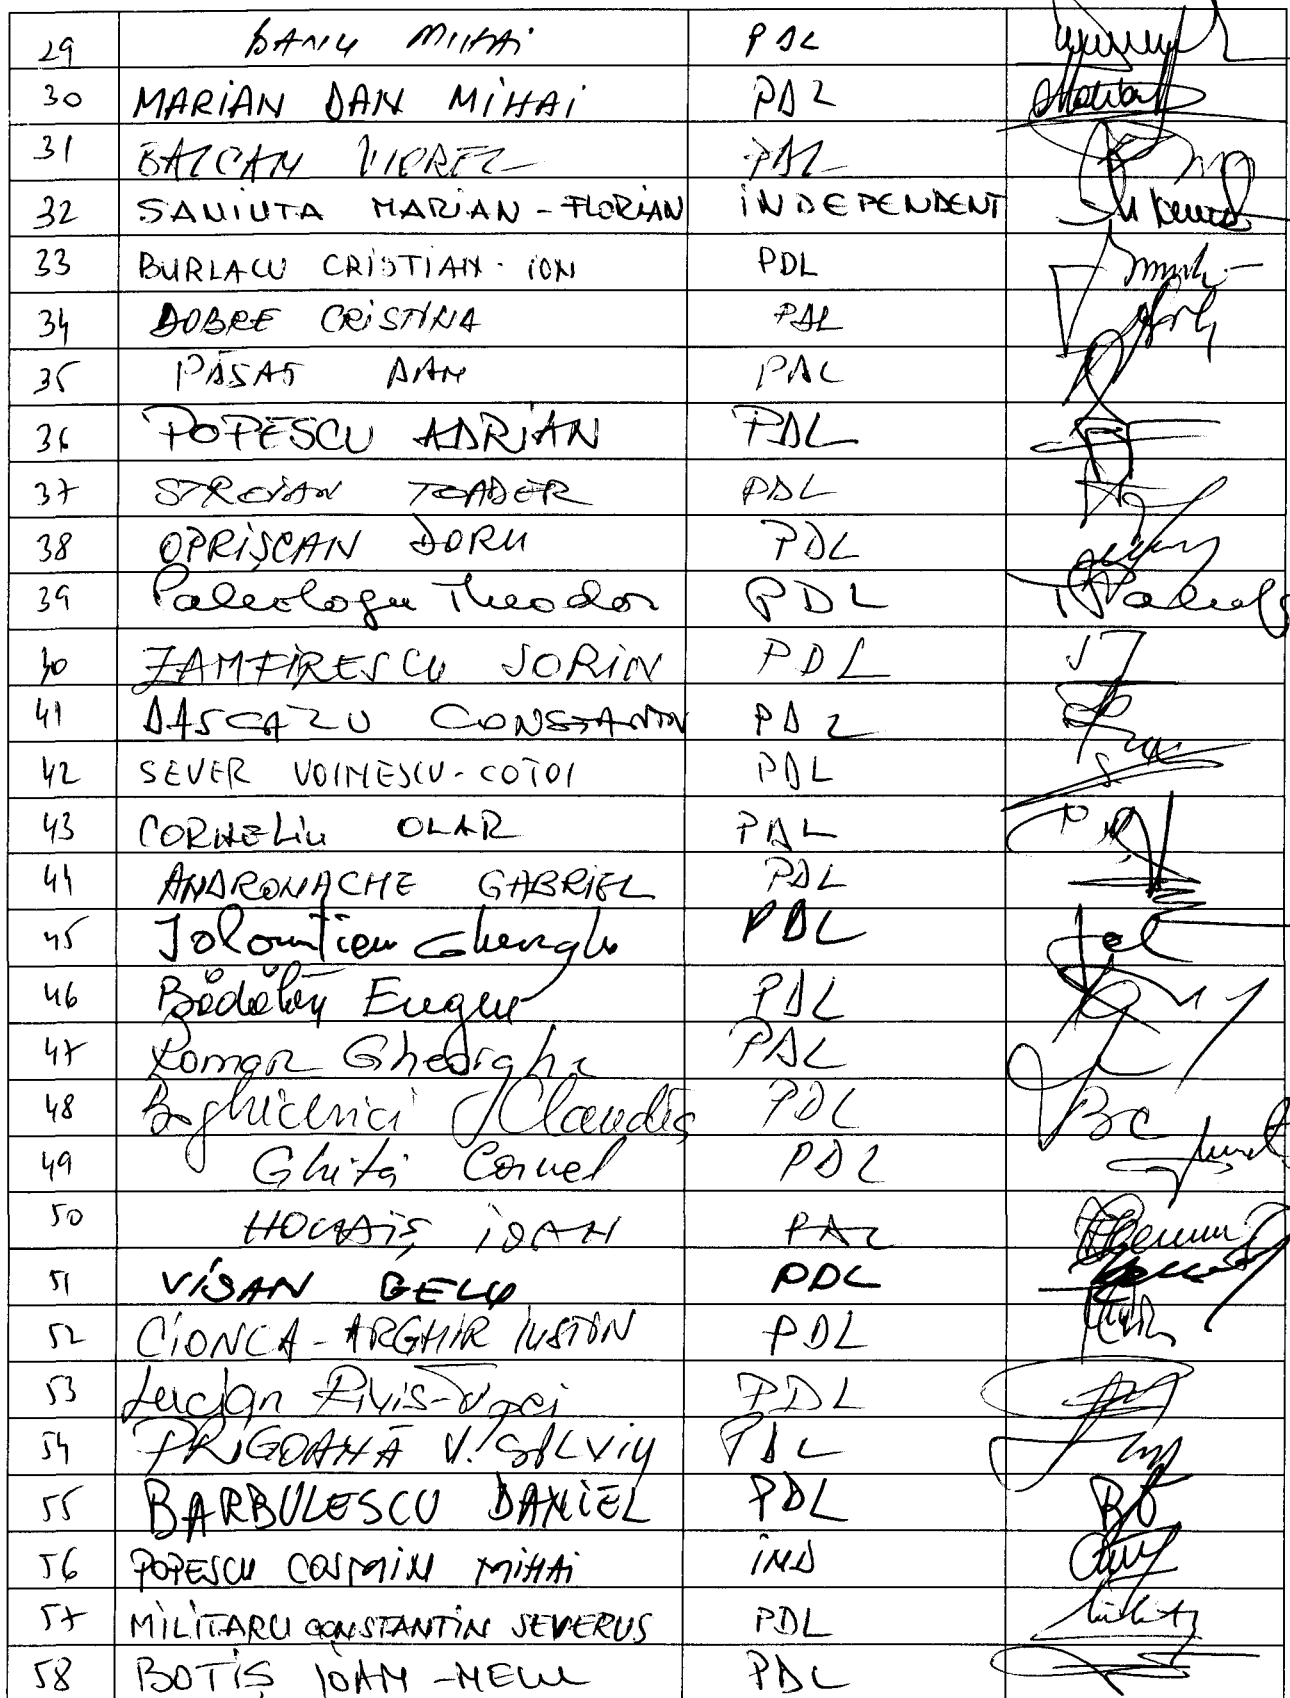 29 BANU MIHAI PDL
30 MARIAN DAN MIHAI PDL
31 BALCAN VIOREL PDL
32 SANIUTA MARIAN-FLORIAN INDEPENDENT
33 BURLACU CRISTIAN-ION PDL
34 DOBRE CRISTINA PDL
35 PĂSAT DAN PDL
36 POPESCU ADRIAN PDL
37 STROIAN TOADER PDL
38 OPRIȘCAN DORU PDL
39 Paleologu Theodor PDL
40 ZAMFIRESCU SORIN PDL
41 DASCALU CONSTANTIN PDL
42 SEVER VOINESCU-COTOI PDL
43 CORNELIU OLAR PDL
44 ANDRONACHE GABRIEL PDL
45 Ialomițianu Gheorghe PDL
46 Bădălan Eugen PDL
47 Roman Gheorghe PDL
48 Boghicevici Claudia PDL
49 Ghiță Cornel PDL
50 IOAN PDL
51 VISAN GELU PDL
52 CIONCA-ARGHIR IUSTIN PDL
53 Lucian Riviș-Tipei PDL
54 PRIGOANĂ V. SILVIU PDL
55 BARBULESCU DANIEL PDL
56 POPESCU COSMIN MIHAI IND
57 MILITARU CONSTANTIN SEVERUS PDL
58 BOTIȘ IOAN-NELU PDL